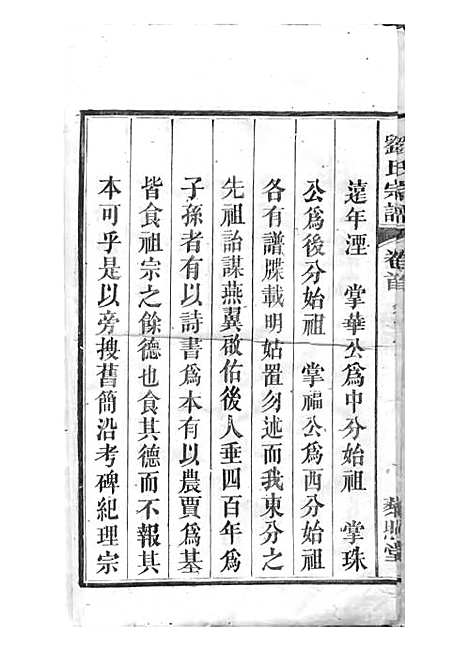 劉氏宗譜 卷首
藜照堂
遠年湮 掌華公爲中分始祖 掌珠
公爲後分始祖 掌福公爲西分始祖
各有譜牒載明姑置勿述而我東分之
先祖詒謀燕翼啟佑後人垂四百年爲
子孫者有以詩書爲本有以農賈爲基
皆食祖宗之餘德也食其德而不報其
本可乎是以旁搜舊簡沿考碑紀理宗